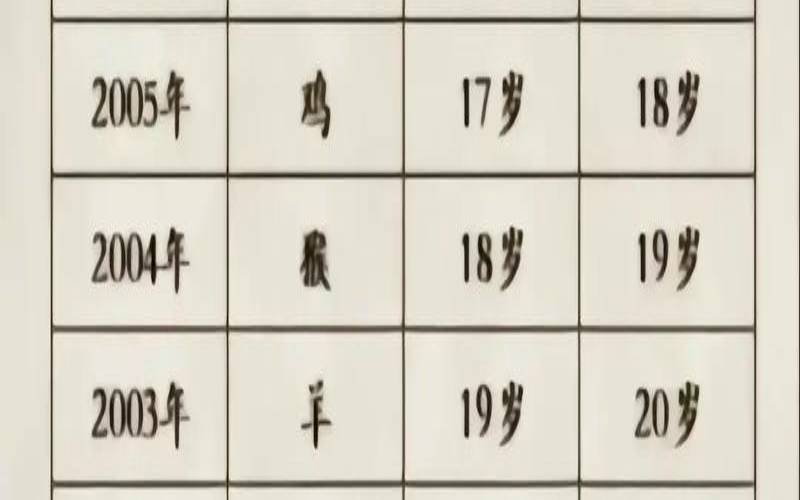 2005年 鸡 17岁 18岁
2004年 猴 18岁 19岁
2003年 羊 19岁 20岁